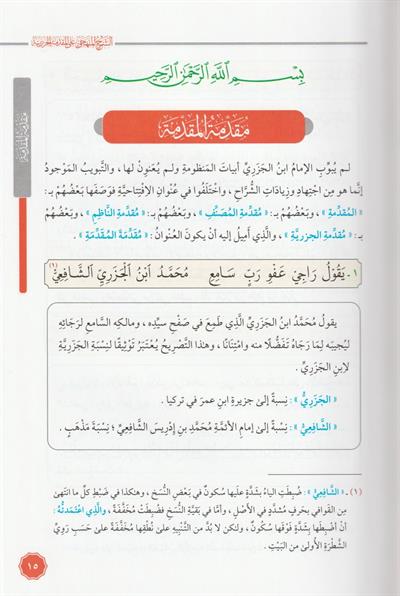 الشرح المنهجي على المقدمة الجزرية
مقدمة المقدمة
بِسْمِ اللَّهِ الرَّحْمَٰنِ الرَّحِيمِ
مُقَدِّمَةُ المُقَدِّمَةِ
لم يُبَوِّبِ الإمامُ ابنُ الجَزَرِيِّ أبياتَ المَنظومةِ ولم يُعَنوِنْ لها ، والتَّبويبُ المَوْجودُ
إنَّما هو مِن اجْتِهادِ وزِياداتِ الشُّرَّاحِ ، واخْتَلَفُوا في عُنْوانِ الافْتِتاحِيَّةِ فوَصَفَها بَعْضُهُمْ بـ :
« المُقَدِّمةِ » ، وبَعْضُهُمْ بـ : « مُقَدِّمةِ المُصَنِّفِ » ، وبَعْضُهُمْ بـ : « مُقَدِّمةِ النَّاظِمِ » ، وبَعْضُهُمْ
بـ : « مُقَدِّمةِ الجزريَّةِ » ، والَّذي أَمِيلُ إليه أنْ يكونَ العُنْوانُ : « مُقَدِّمَةَ المُقَدِّمَةِ » .
١ - يَقُولُ رَاجِيْ عَفْوِ رَبٍّ سَامِعِ مُحَمَّدُ ابْنُ الْجَزَرِيِّ الشَّافِعِيْ (١)
يقولُ مُحَمَّدُ ابنُ الجَزَرِيِّ الَّذي طَمِعَ في صَفْحِ سيِّدِه ، ومالِكِه السَّامعِ لرَجائِهِ
ليُجيبَه لِمَا رَجاهُ تَفَضُّلًا منه وامْتِنانًا ، وهذا التَّصْرِيحُ يُعْتَبَرُ تَوْثِيقًا لِنِسْبَةِ الجَزَرِيَّةِ
لابنِ الجَزَرِيِّ .
« الجَزَرِيُّ » : نِسبةً إلى جزيرةِ ابنِ عمرَ في تركيا .
« الشَّافِعِيُّ » : نِسْبَةً إلى إمامِ الأئمَّةِ مُحَمَّدِ بنِ إدْرِيسَ الشَّافِعِيِّ ؛ نِسْبَةَ مَذْهَبٍ .
(١) - « الشَّافِعِيْ » : ضُبِطَتِ الياءُ بشَدَّةٍ عليها سُكونٌ في بَعْضِ النُّسَخِ ، وهكذا في ضَبْطِ كلِّ ما انْتَهىٰ
مِن القَوافي بحَرفٍ مُشدَّدٍ في الأصْلِ ، وأمَّا في بَقيَّةِ النُّسَخِ فضُبِطَتْ مُخَفَّفَةً ، والَّذي اعْتَمَدتُّهُ :
أنْ أضْبِطَها بشَدَّةٍ فَوْقَها سُكُونٌ ، ولكن لا بُدَّ من التَّنْبِيهِ على نُطْقِها مُخَفَّفَةً على حَسَبِ رَوِيِّ
الشَّطْرَةِ الأُولىٰ مِن البَيْتِ .
١٥